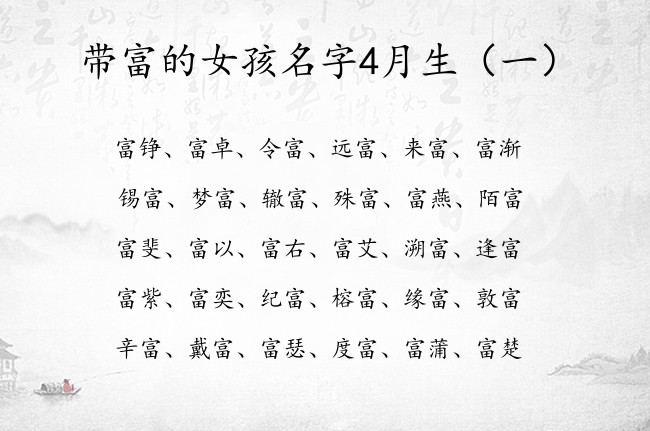 带富的女孩名字4月生（一）
富铮、富卓、令富、远富、来富、富渐
锡富、梦富、辙富、殊富、富燕、陌富
富斐、富以、富右、富艾、溯富、逢富
富紫、富奕、纪富、榕富、缘富、敦富
辛富、戴富、富瑟、度富、富蒲、富楚